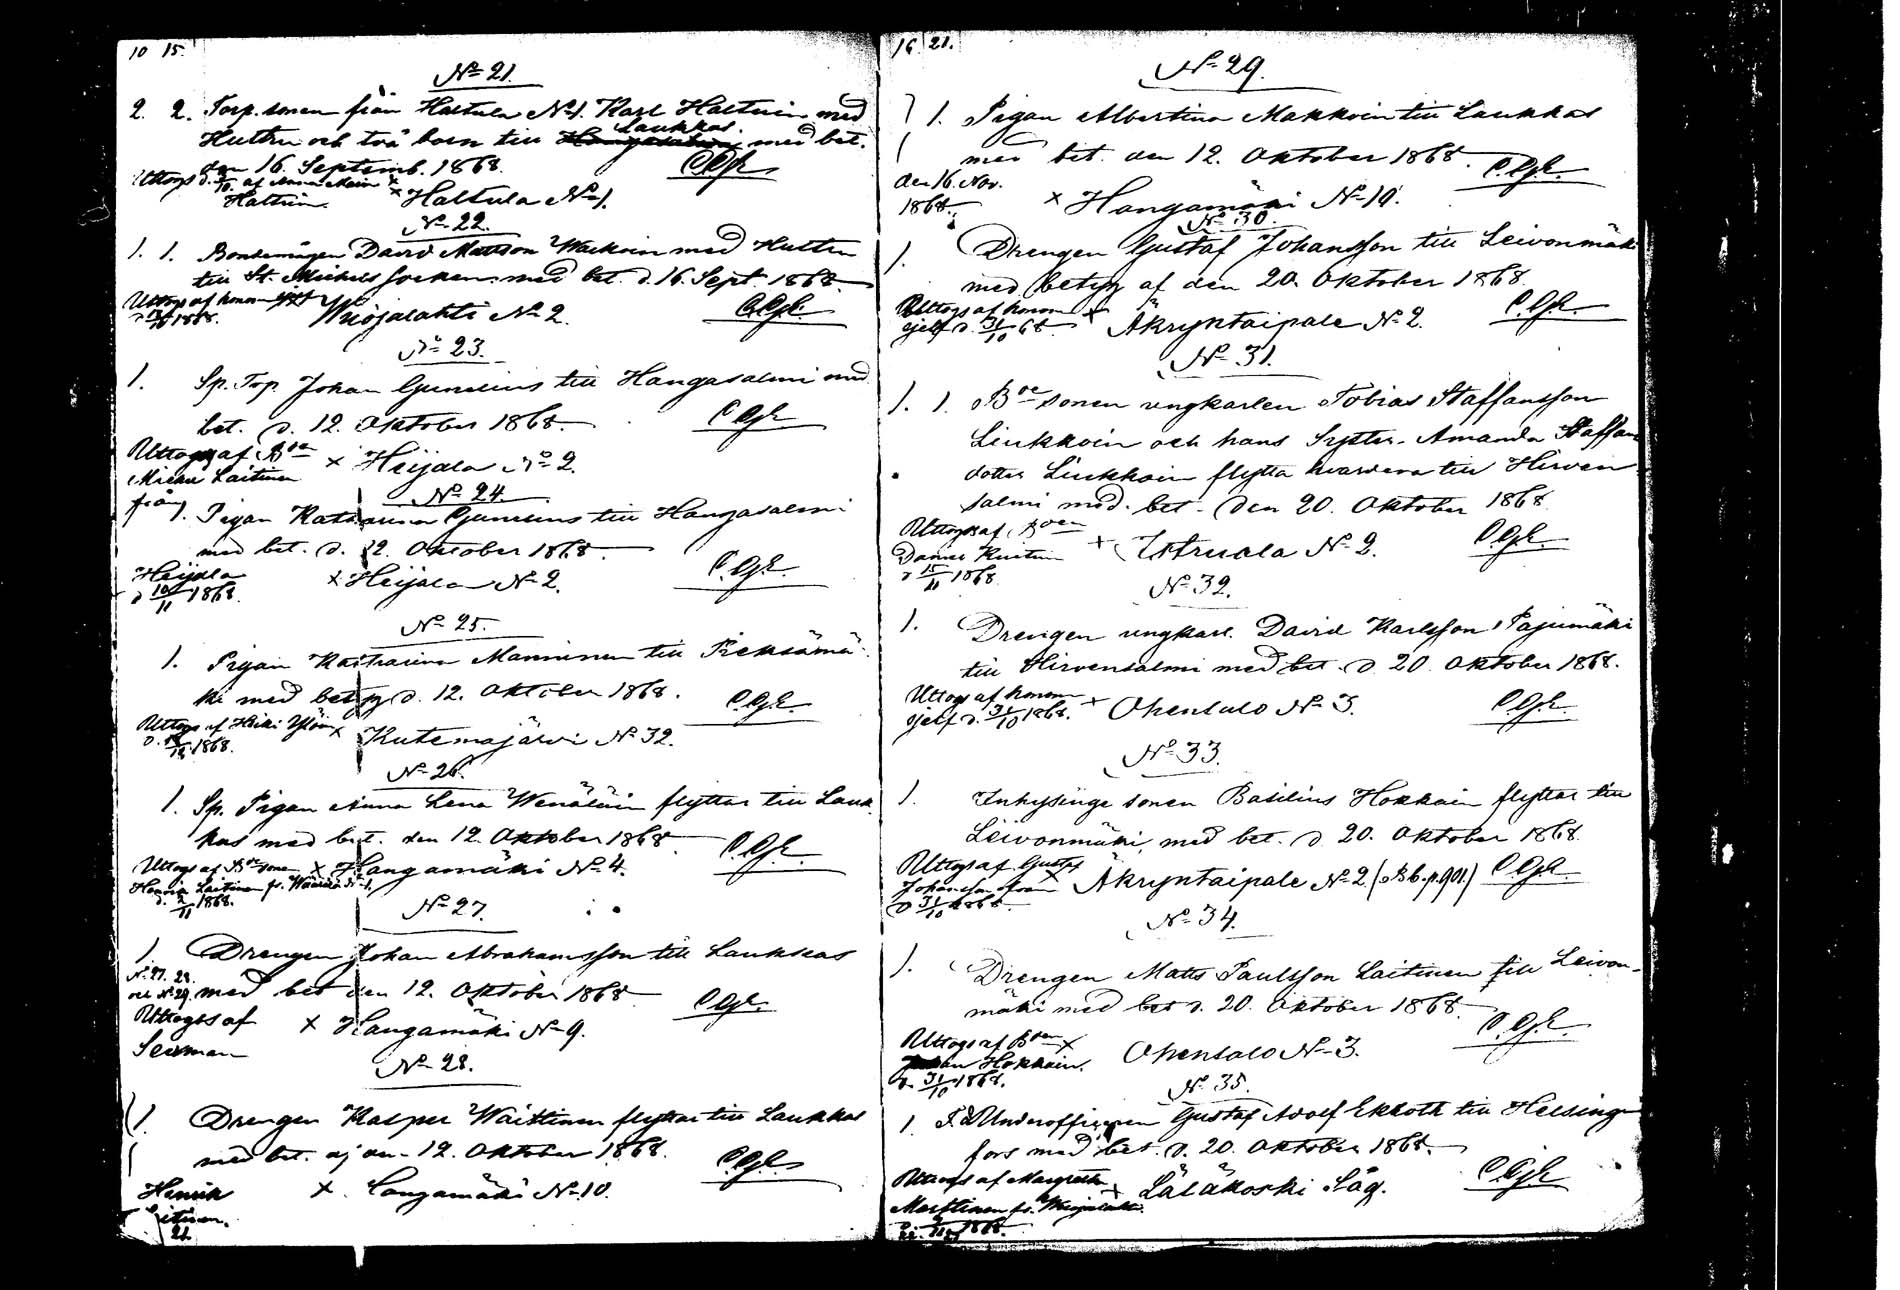 10 15.
No 21.
2. 2. Torp. sonen från Haltula No 1. Karl Halttuin med
Hustru och två barn till Laukkas. med bet.
den 16. Septemb. 1868. C.G.E.
Uttogs d. /10. af Anna Maria
Halttuin. × Haltula No 1.
No 22.
1. 1. Bondemågen David Mattsson Wackoin med Hustru
till St. Michels Socken med bet. d. 16. Sept. 1868.
Uttogs af honom sjelf
1868. Wuojalahti No 2. C.G.E.
No 23.
1. Sp. Torp. Johan Gumerus till Hangasalmi med
bet. d. 12. Oktober 1868. C.G.E.
Uttogs af Bde × Heijala No 2.
Michel Laitinen
från
No 24.
1. Pigan Katharina Gumerus till Hangasalmi
med bet. d. 12. Oktober 1868.
Heijala × Heijala No 2. C.G.E.
d 10/11 1868.
No 25.
1. Pigan Katharina Manninen till Pieksämä-
ki med betyg d. 12. Oktober 1868. C.G.E.
Uttogs af Heiki
1868. × Kutemajärvi No 32.
No 26.
1. Sp. Pigan Anna Lena Wenäläin flyttar till Lauk
kas med bet. den 12. Oktober 1868. C.G.E.
Uttogs af Bde sonen × Hangamäki No 4.
Henrik Laitinen fr.
d. 2/11 1868.
No 27.
1. Drengen Johan Abrahamsson till Laukkas
No 27. 28.
och No 29. med bet den 12. Oktober 1868 C.G.E.
Uttogs af × Hangamäki No 9.
Sexman
No 28.
1. Drengen Kasper Wäittinen flyttar till Laukkas
med bet. af den 12. Oktober 1868. C.G.E.
Henrik × Hangamäki No 10.
Laitinen.
21
16 21.
No 29.
1. Pigan Albertina Makkoin till Laukkas
med bet. den 12. Oktober 1868. C.G.E.
den 16. Nov.
1868. × Hangamäki No 10.
No 30.
1. Drengen Gustaf Johansson till Leivonmäki
med betyg af den 20. Oktober 1868.
Uttogs af honom
sjelf d. 31/10 68 × Äkryntaipale No 2. C.G.E.
No 31.
1. 1. Bde sonen ungkarlen Tobias Staffansson
Liukkoin och hans Syster Amanda Staffans
dotter Liukkoin flytta hvardera till Hirven
salmi med bet. den 20. Oktober 1868.
Uttogs af Bden
Daniel × Istruala No 2. C.G.E.
d 15/11 1868.
No 32.
1. Drengen ungkarl. David Karlsson Pajumäki
till Hirvensalmi med bet. d 20. Oktober 1868.
Uttogs af honom
sjelf d. 31/10 1868. × Ohensalo No 3. C.G.E.
No 33.
1. Inhysinge sonen Basilius Hokkain flyttar till
Leivonmäki, med bet. d 20. Oktober 1868.
Uttogs af Gustaf
Johansson × Äkryntaipale No 2. (Bb. p. 901.) C.G.E.
d 31/10 1868.
No 34.
1. Drengen Matts Paulsson Laitinen till Leivon-
mäki med bet d. 20. Oktober 1868. C.G.E.
Uttogs af Bden ×
Hokkain. Ohensalo No 3.
d. 31/10 1868.
No 35.
1. F.d. Underofficeren Gustaf Adolf Ekroth till Helsing
fors med bet. d. 20. Oktober 1868. C.G.E.
Uttogs af Margretha × Läläkoski Såg.
Marttinen fr. Wuojalahti
1868.